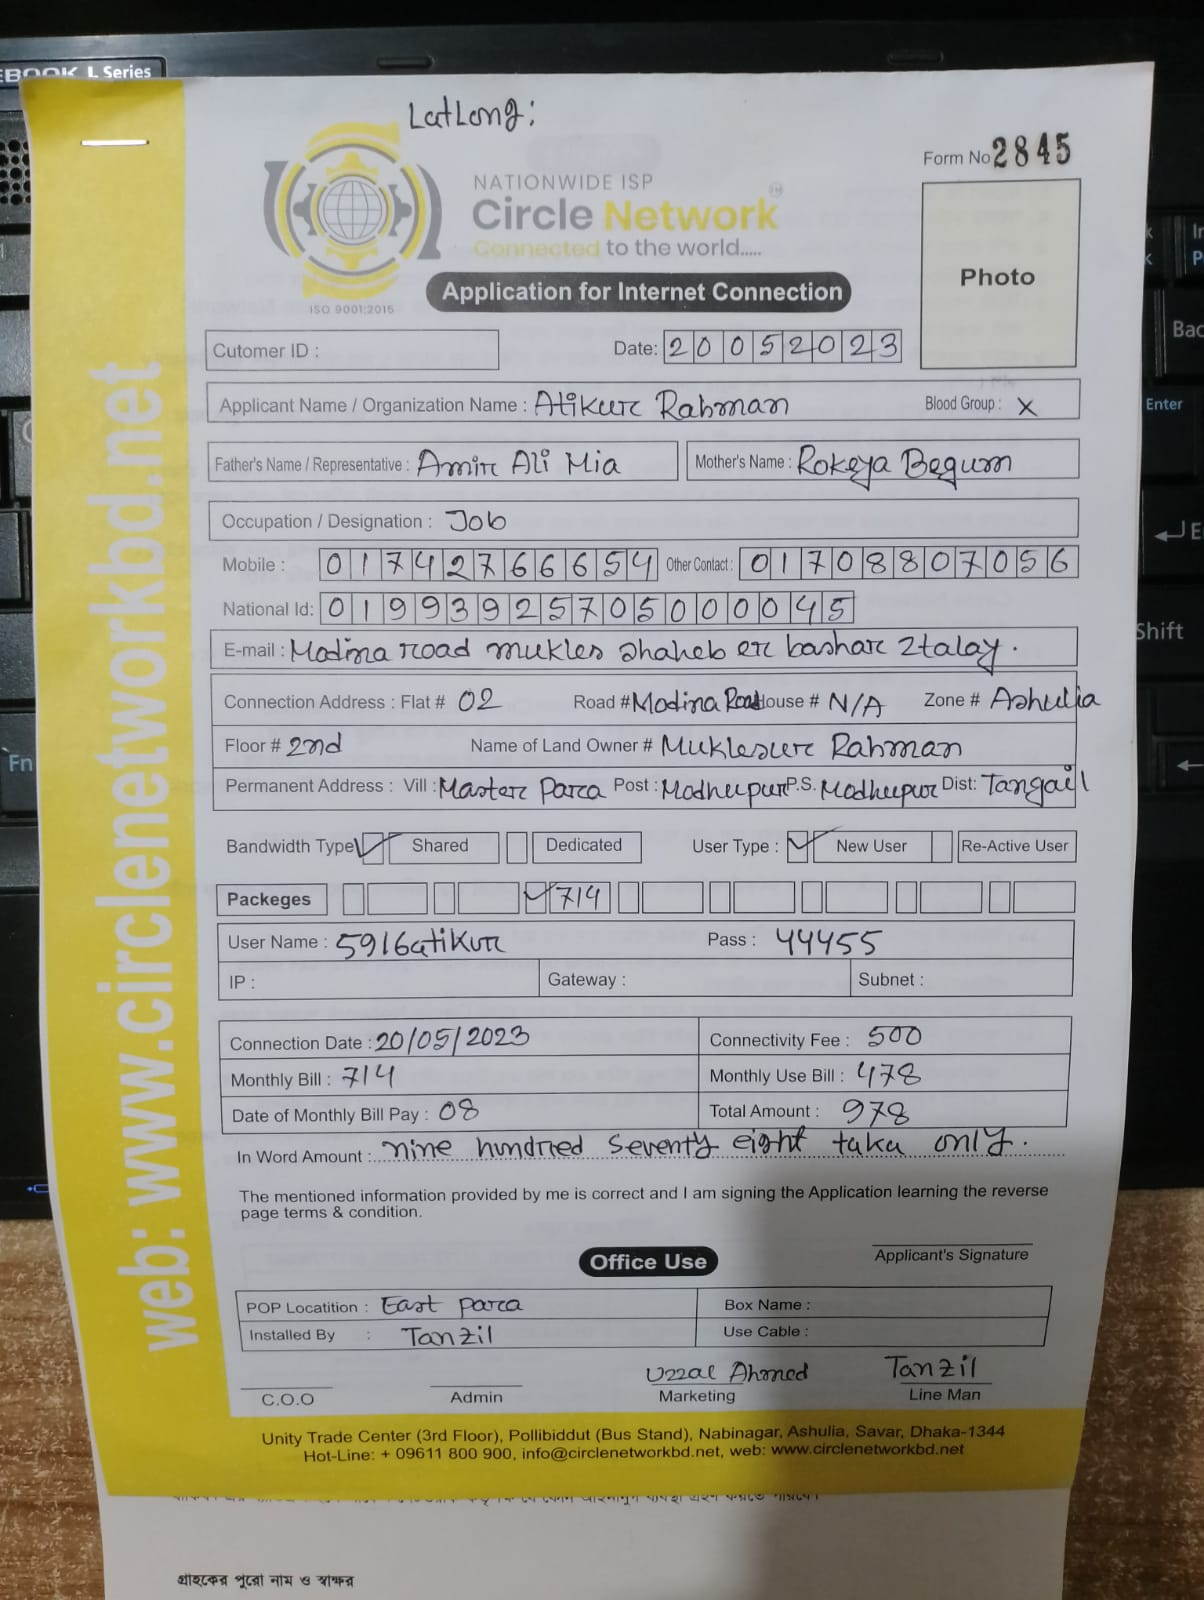 EBOOK L Series
LatLong:
Form No 2845
NATIONWIDE ISP
Circle Network
Connected to the world.....
ISO 9001:2015
Application for Internet Connection
Photo
Cutomer ID :
Date: 20052023
Applicant Name / Organization Name : Atikur Rahman Blood Group : X
Father's Name / Representative : Amir Ali Mia Mother's Name : Rokeya Begum
Occupation / Designation : Job
Mobile : 01742766654 Other Contact : 01708807056
National Id: 01993925705000045
E-mail : Madina road mukles shaheb er bashar 2talay.
Connection Address : Flat # 02 Road # Modina Road House # N/A Zone # Ashulia
Floor # 2nd Name of Land Owner # Muklesur Rahman
Permanent Address : Vill : Master Para Post : Modhupur P.S. Modhupur Dist: Tangail
Bandwidth Type Shared Dedicated User Type : New User Re-Active User
Packeges 714
User Name : 5916atikur Pass : 44455
IP : Gateway : Subnet :
Connection Date : 20/05/2023 Connectivity Fee : 500
Monthly Bill : 714 Monthly Use Bill : 478
Date of Monthly Bill Pay : 08 Total Amount : 978
In Word Amount : nine hundred seventy eight taka only.
The mentioned information provided by me is correct and I am signing the Application learning the reverse
page terms & condition.
Applicant's Signature
Office Use
POP Locatition : East Para Box Name :
Installed By : Tanzil Use Cable :
Uzzal Ahmed Tanzil
C.O.O Admin Marketing Line Man
Unity Trade Center (3rd Floor), Pollibiddut (Bus Stand), Nabinagar, Ashulia, Savar, Dhaka-1344
Hot-Line: + 09611 800 900, info@circlenetworkbd.net, web: www.circlenetworkbd.net
web: www.circlenetworkbd.net
গ্রাহকের পুরো নাম ও স্বাক্ষর
Enter
Shift
Fn